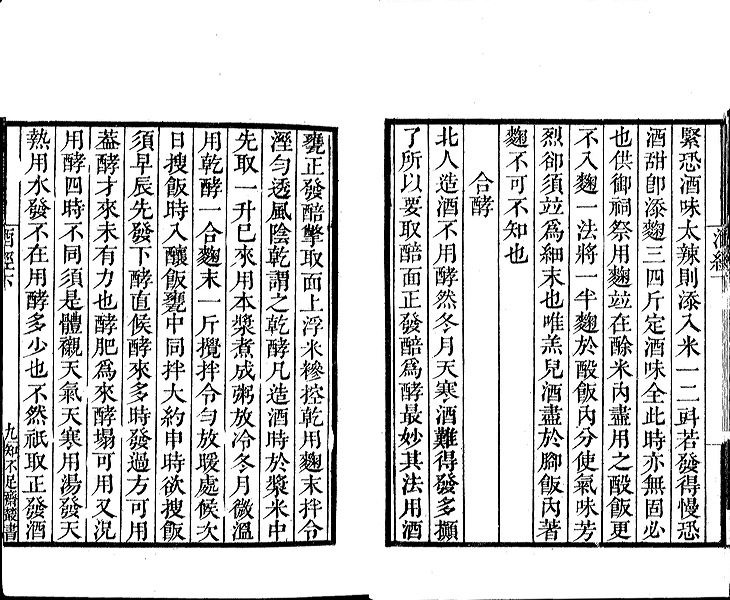 緊恐酒味太辣則添入米一二㪷若發得慢恐
酒甜卽添麴三四斤定酒味全此時亦無固必
也供御祠祭用麴竝在酴米內盡用之酘飯更
不入麴一法將一半麴於酘飯內分使氣味芳
烈卻須竝爲細末也唯羔兒酒盡於腳飯內著
麴不可不知也
合酵
北人造酒不用酵然冬月天寒酒難得發多攧
了所以要取醅面正發醅爲酵最妙其法用酒
甕正發醅撆取面上浮米糝控乾用麴末拌令
溼勻透風陰乾謂之乾酵凡造酒時於漿米中
先取一升巳來用本漿煮成粥放冷冬月微溫
用乾酵一合麴末一斤攪拌令勻放暖處候次
日搜飯時入釀飯甕中同拌大約申時欲搜飯
須早辰先發下酵直候酵來多時發過方可用
葢酵才來未有力也酵肥爲來酵塌可用又況
用酵四時不同須是體襯天氣天寒用湯發天
熱用水發不在用酵多少也不然祇取正發酒
酒經下
九知不足齋叢書